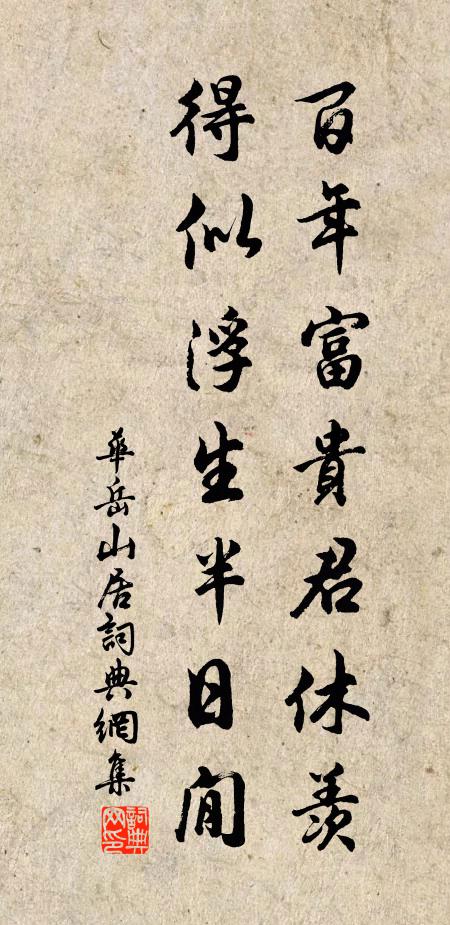 百年富貴君休羨
得似浮生半日閒
華岳山居詞典網集
詞典網印